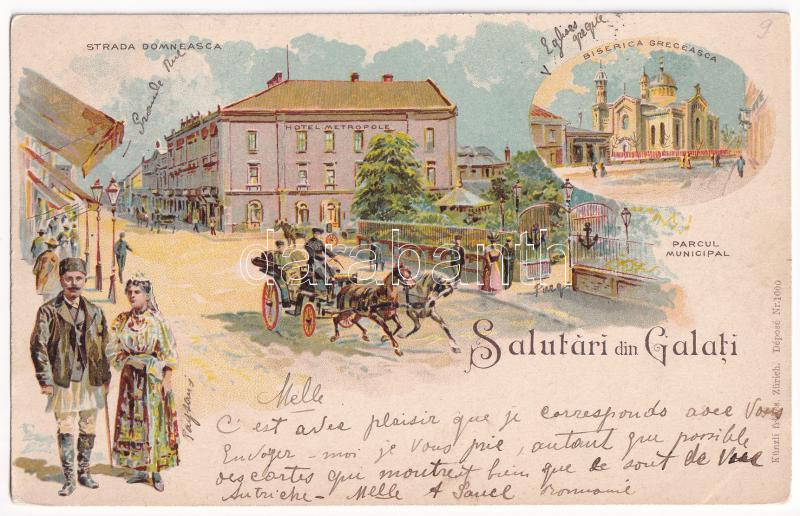 9
STRADA DOMNEASCA
Grande Rue
HOTEL METROPOLE
Eglise grecque
BISERICA GRECEASCA
PARCUL
MUNICIPAL
darabanth
Paysans
Salutări din Galaţi
Künzli frères, Zürich. Déposé Nr. 1000
Melle
C'est avec plaisir que je corresponds avec Vous
Envoyer-moi je vous prie, autant que possible
des cartes qui montrent bien que ce sont de Vue
Autriche - Melle A Roumanie